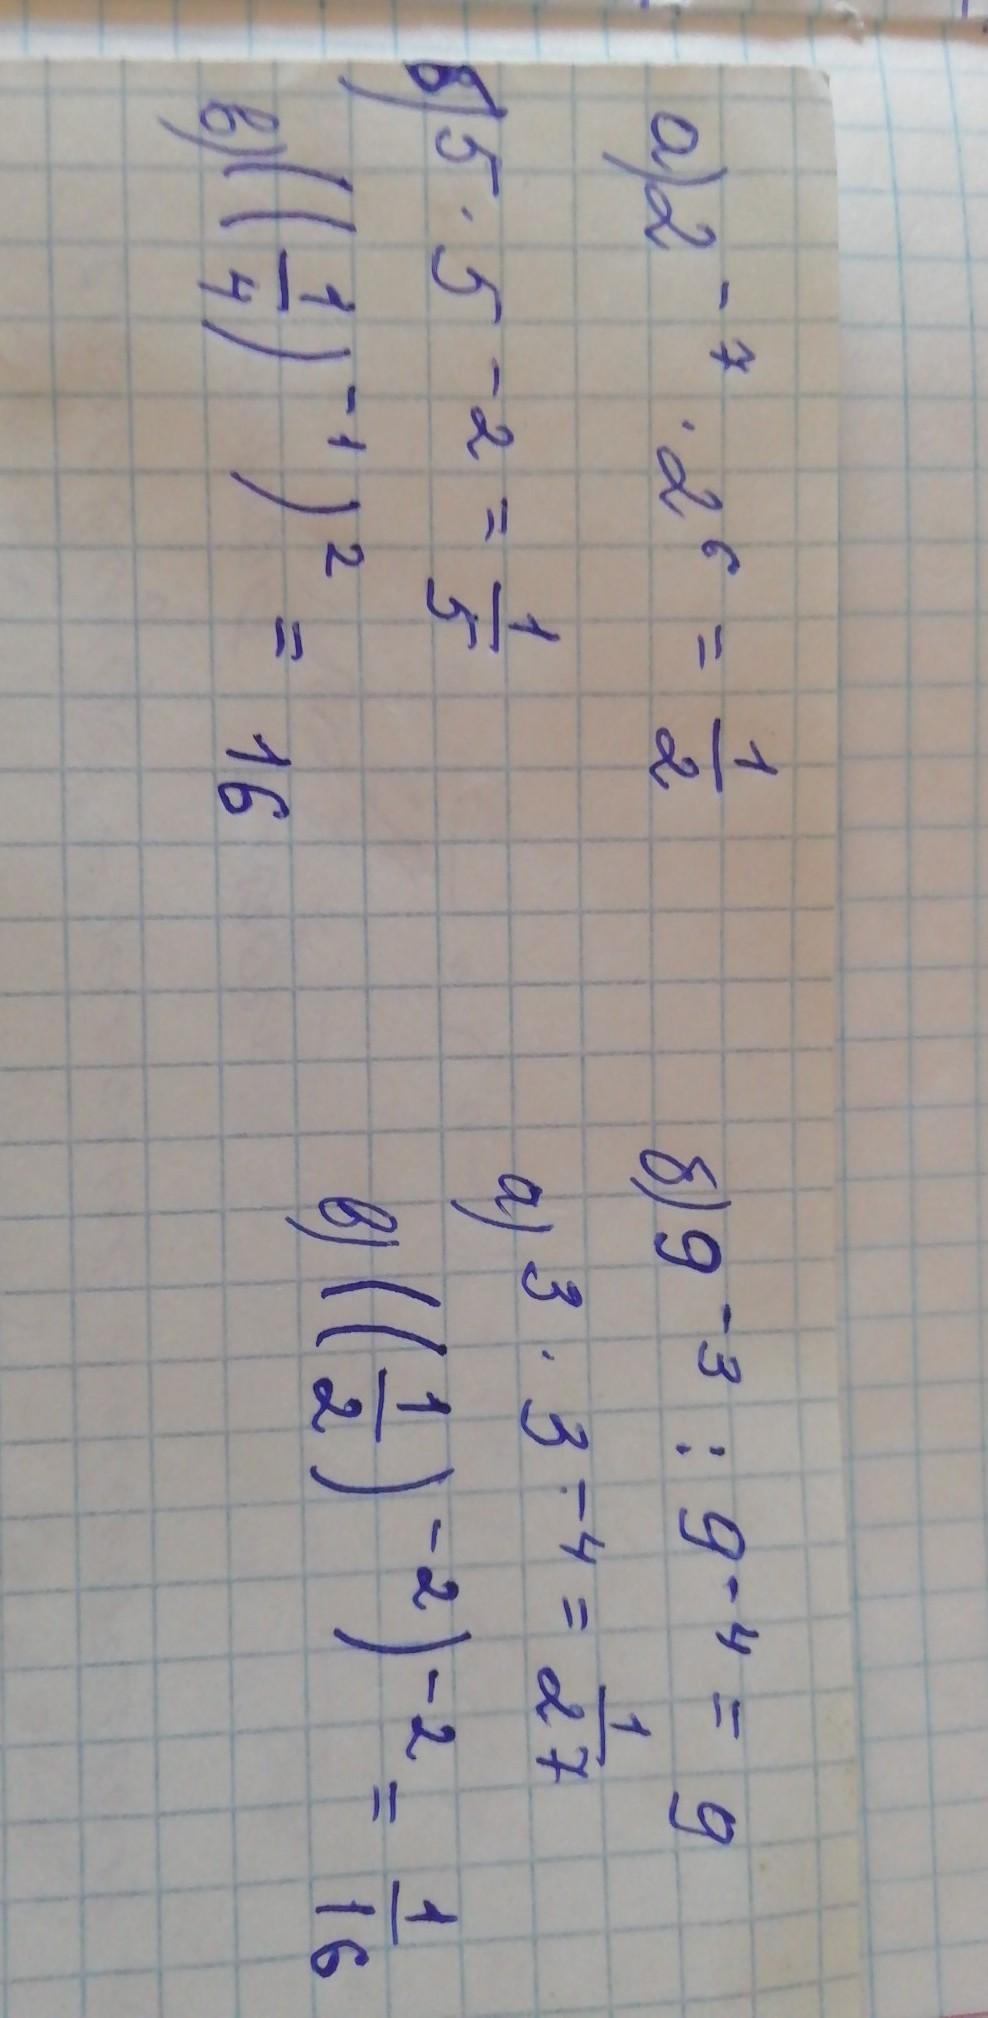 а) 2⁻⁷ · 2⁶ = 1/2
б) 5 · 5⁻² = 1/5
в) ((1/4)⁻¹)² = 16
б) 9⁻³ : 9⁻⁴ = 9
а) 3 · 3⁻⁴ = 1/27
в) ((1/2)⁻²)⁻² = 1/16